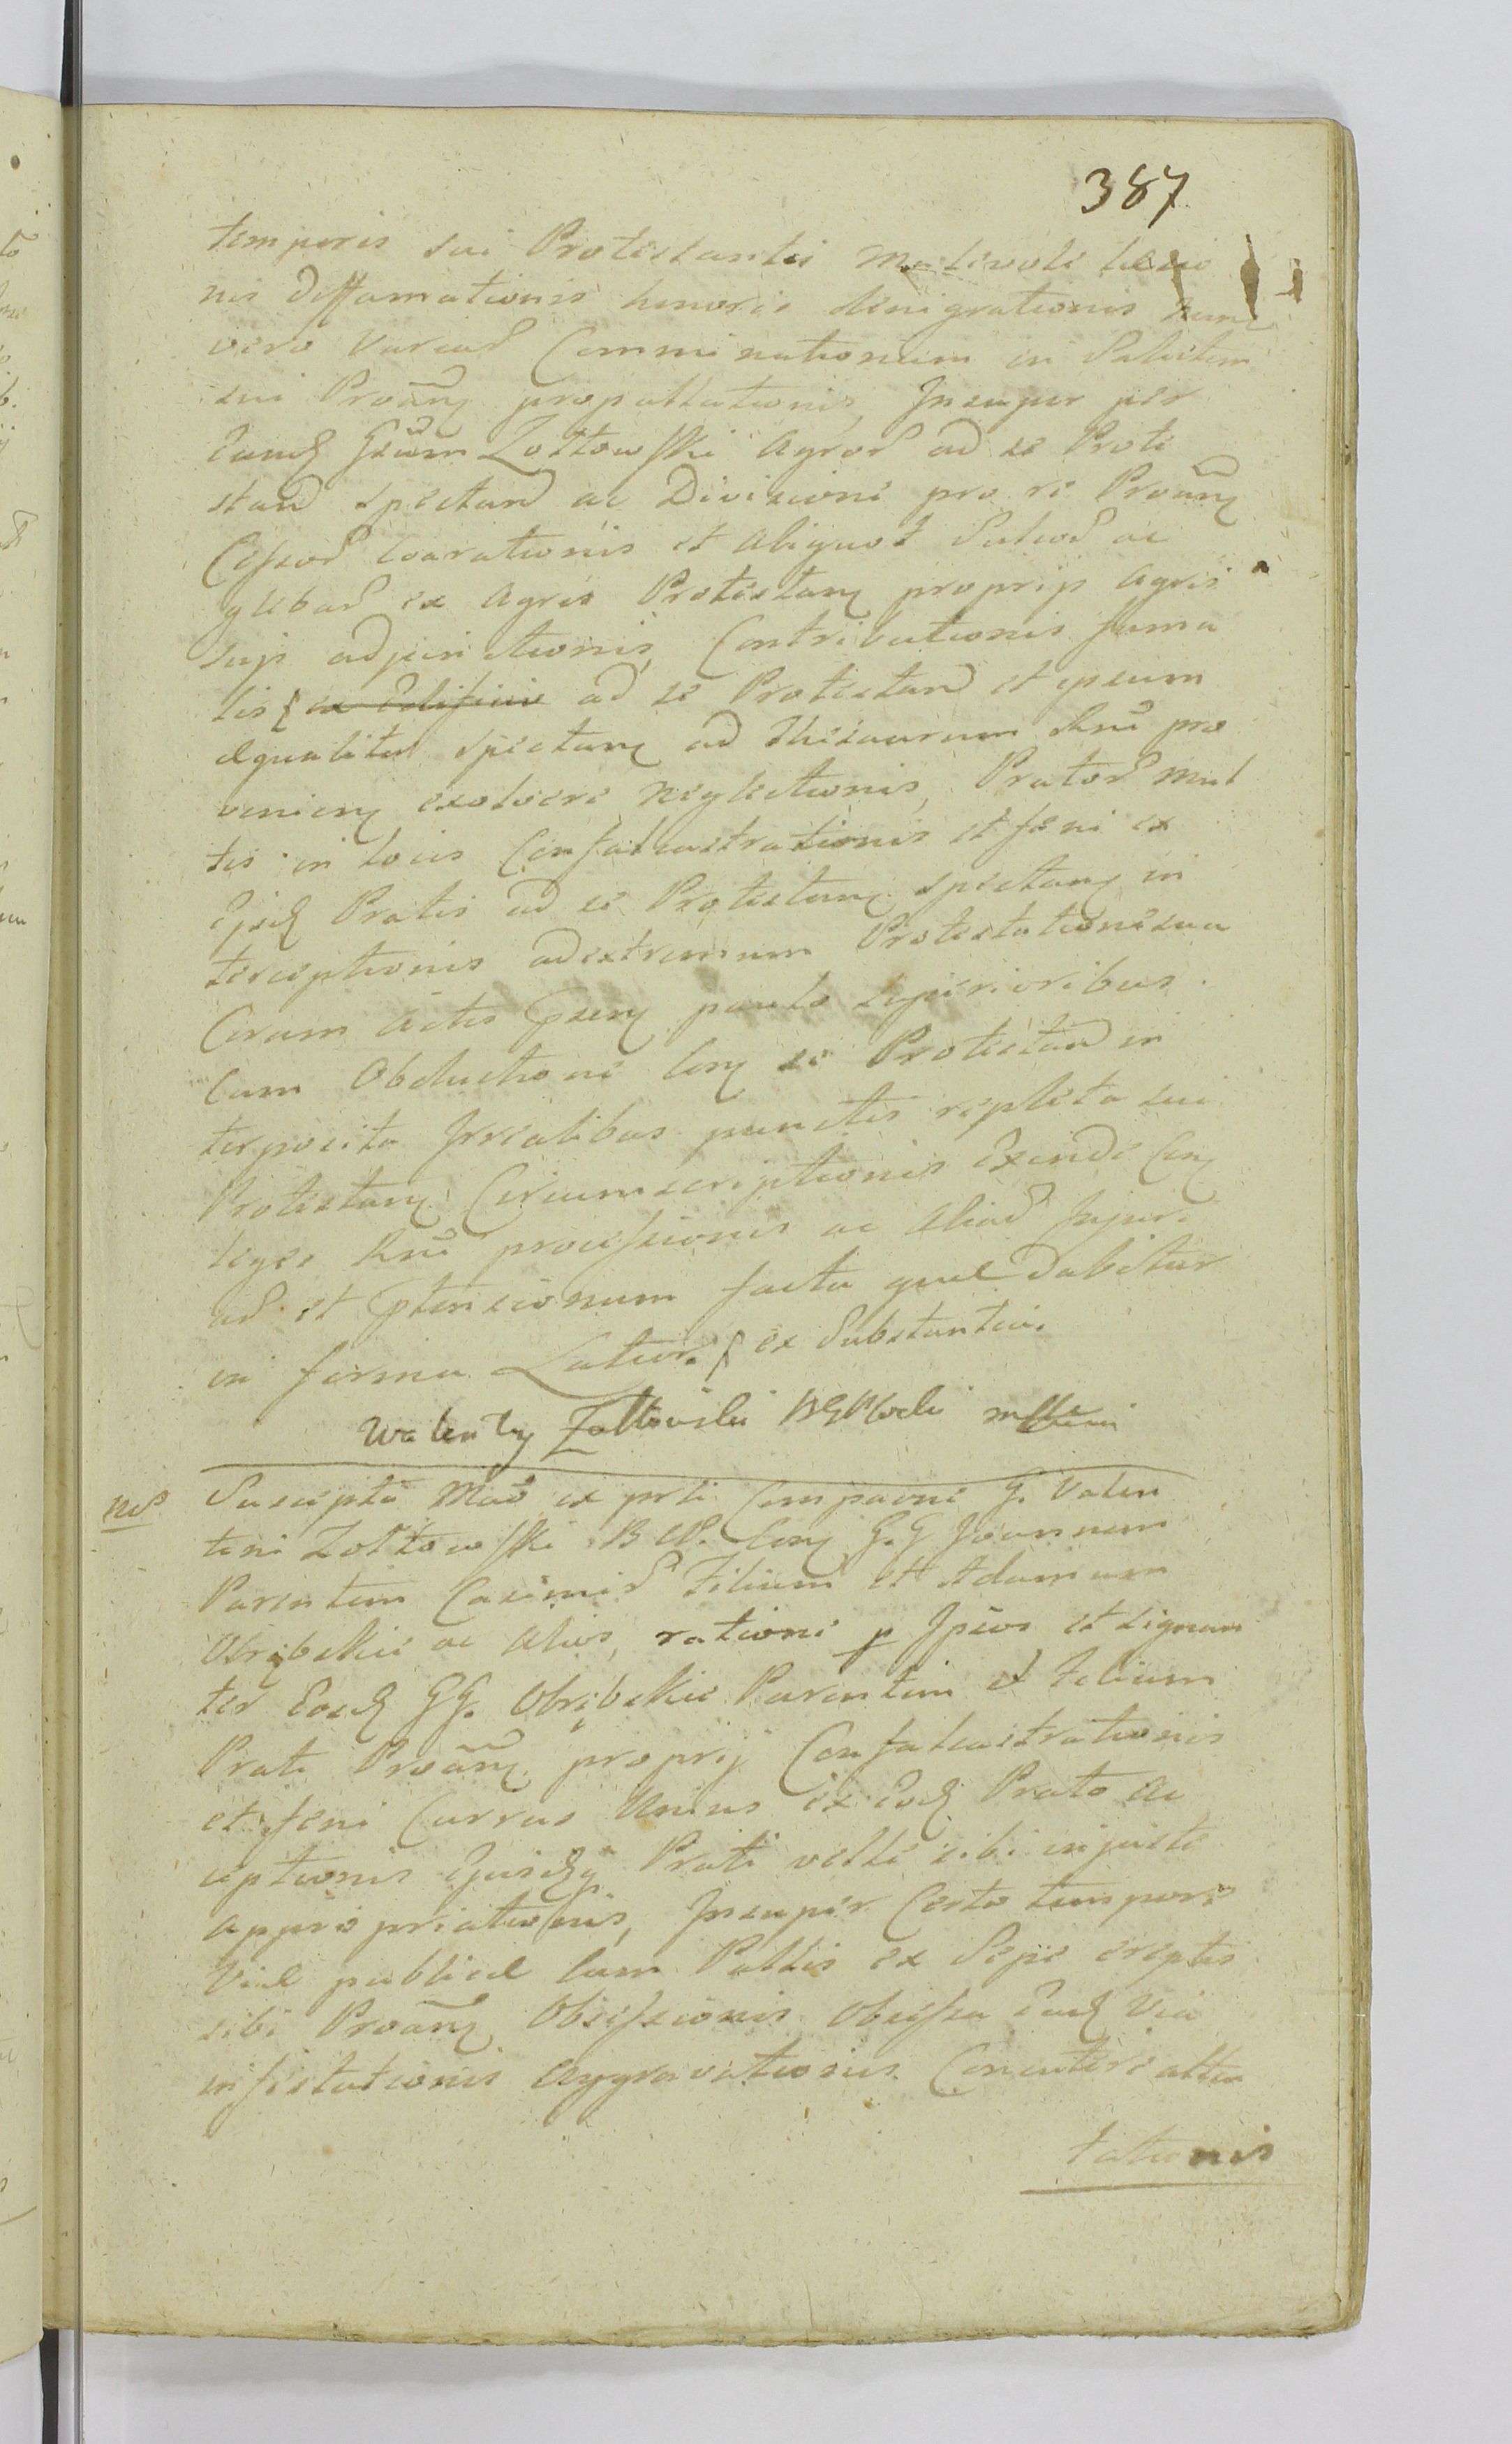 387
temporis sui Protestantis malevole laesio
nis diffamationis honoris denigrationis nunc
vero variar Comminationum in Salutem
sui Proãn propallationis, Insuper per
Eund Gsum Zołtowski Agror ad se Prote
stand spectand ac Divisioni pro re Proãn
Cessor coarationis et aliquot Sulcor ac
glebar ex Agris Protestan proprijs Agris
suis adjunctionis, Contributionis fuma
lis ex Edificio ad se Protestand et ipsum
equaliter spectan ad Thesaurum Rni pro
venien exolvere neglectionis, Prator mul
tis in locis Confalcastrationis et feni ex
Ijsd Pratis ad se Protestan spectan in
terceptionis ad extremum Protestatione sua
Coram Actis psen paulo superioribus
Cum Obductione Con se Protestand in
terposita Irrealibus punctis repleta sui
Protestan Circumscriptionis Exinde Con
leges Rni processionis ac aliar Injuri
ar et ptensionum facta quae dabitur
in forma Latior ex Substantia
Walenty Zołtowski
Nos
Suscepta Mao ex prti Comparne G. Valen
tini Zołtowski B W. Con G. G Joannem
Parentem Casimir Filium et Adamum
Obrębskie ac alios, ratione p Ipsos et signan
ter Eosd GG. Obrębskie Parentem et Filium
Prati Proãn proprij Confalcastrationis
et feni Currus Unius ex Eod Prato ac
ceptionis Ejusdq Prati velle sibi injuste
appropriationis, Insuper Certo tempore
Viae publicae cum Pallis ex Sepe ereptis
sibi Proãn Obsessionis Obsessa Ead Via
infestationis aggravationis Concutere atten
tationis